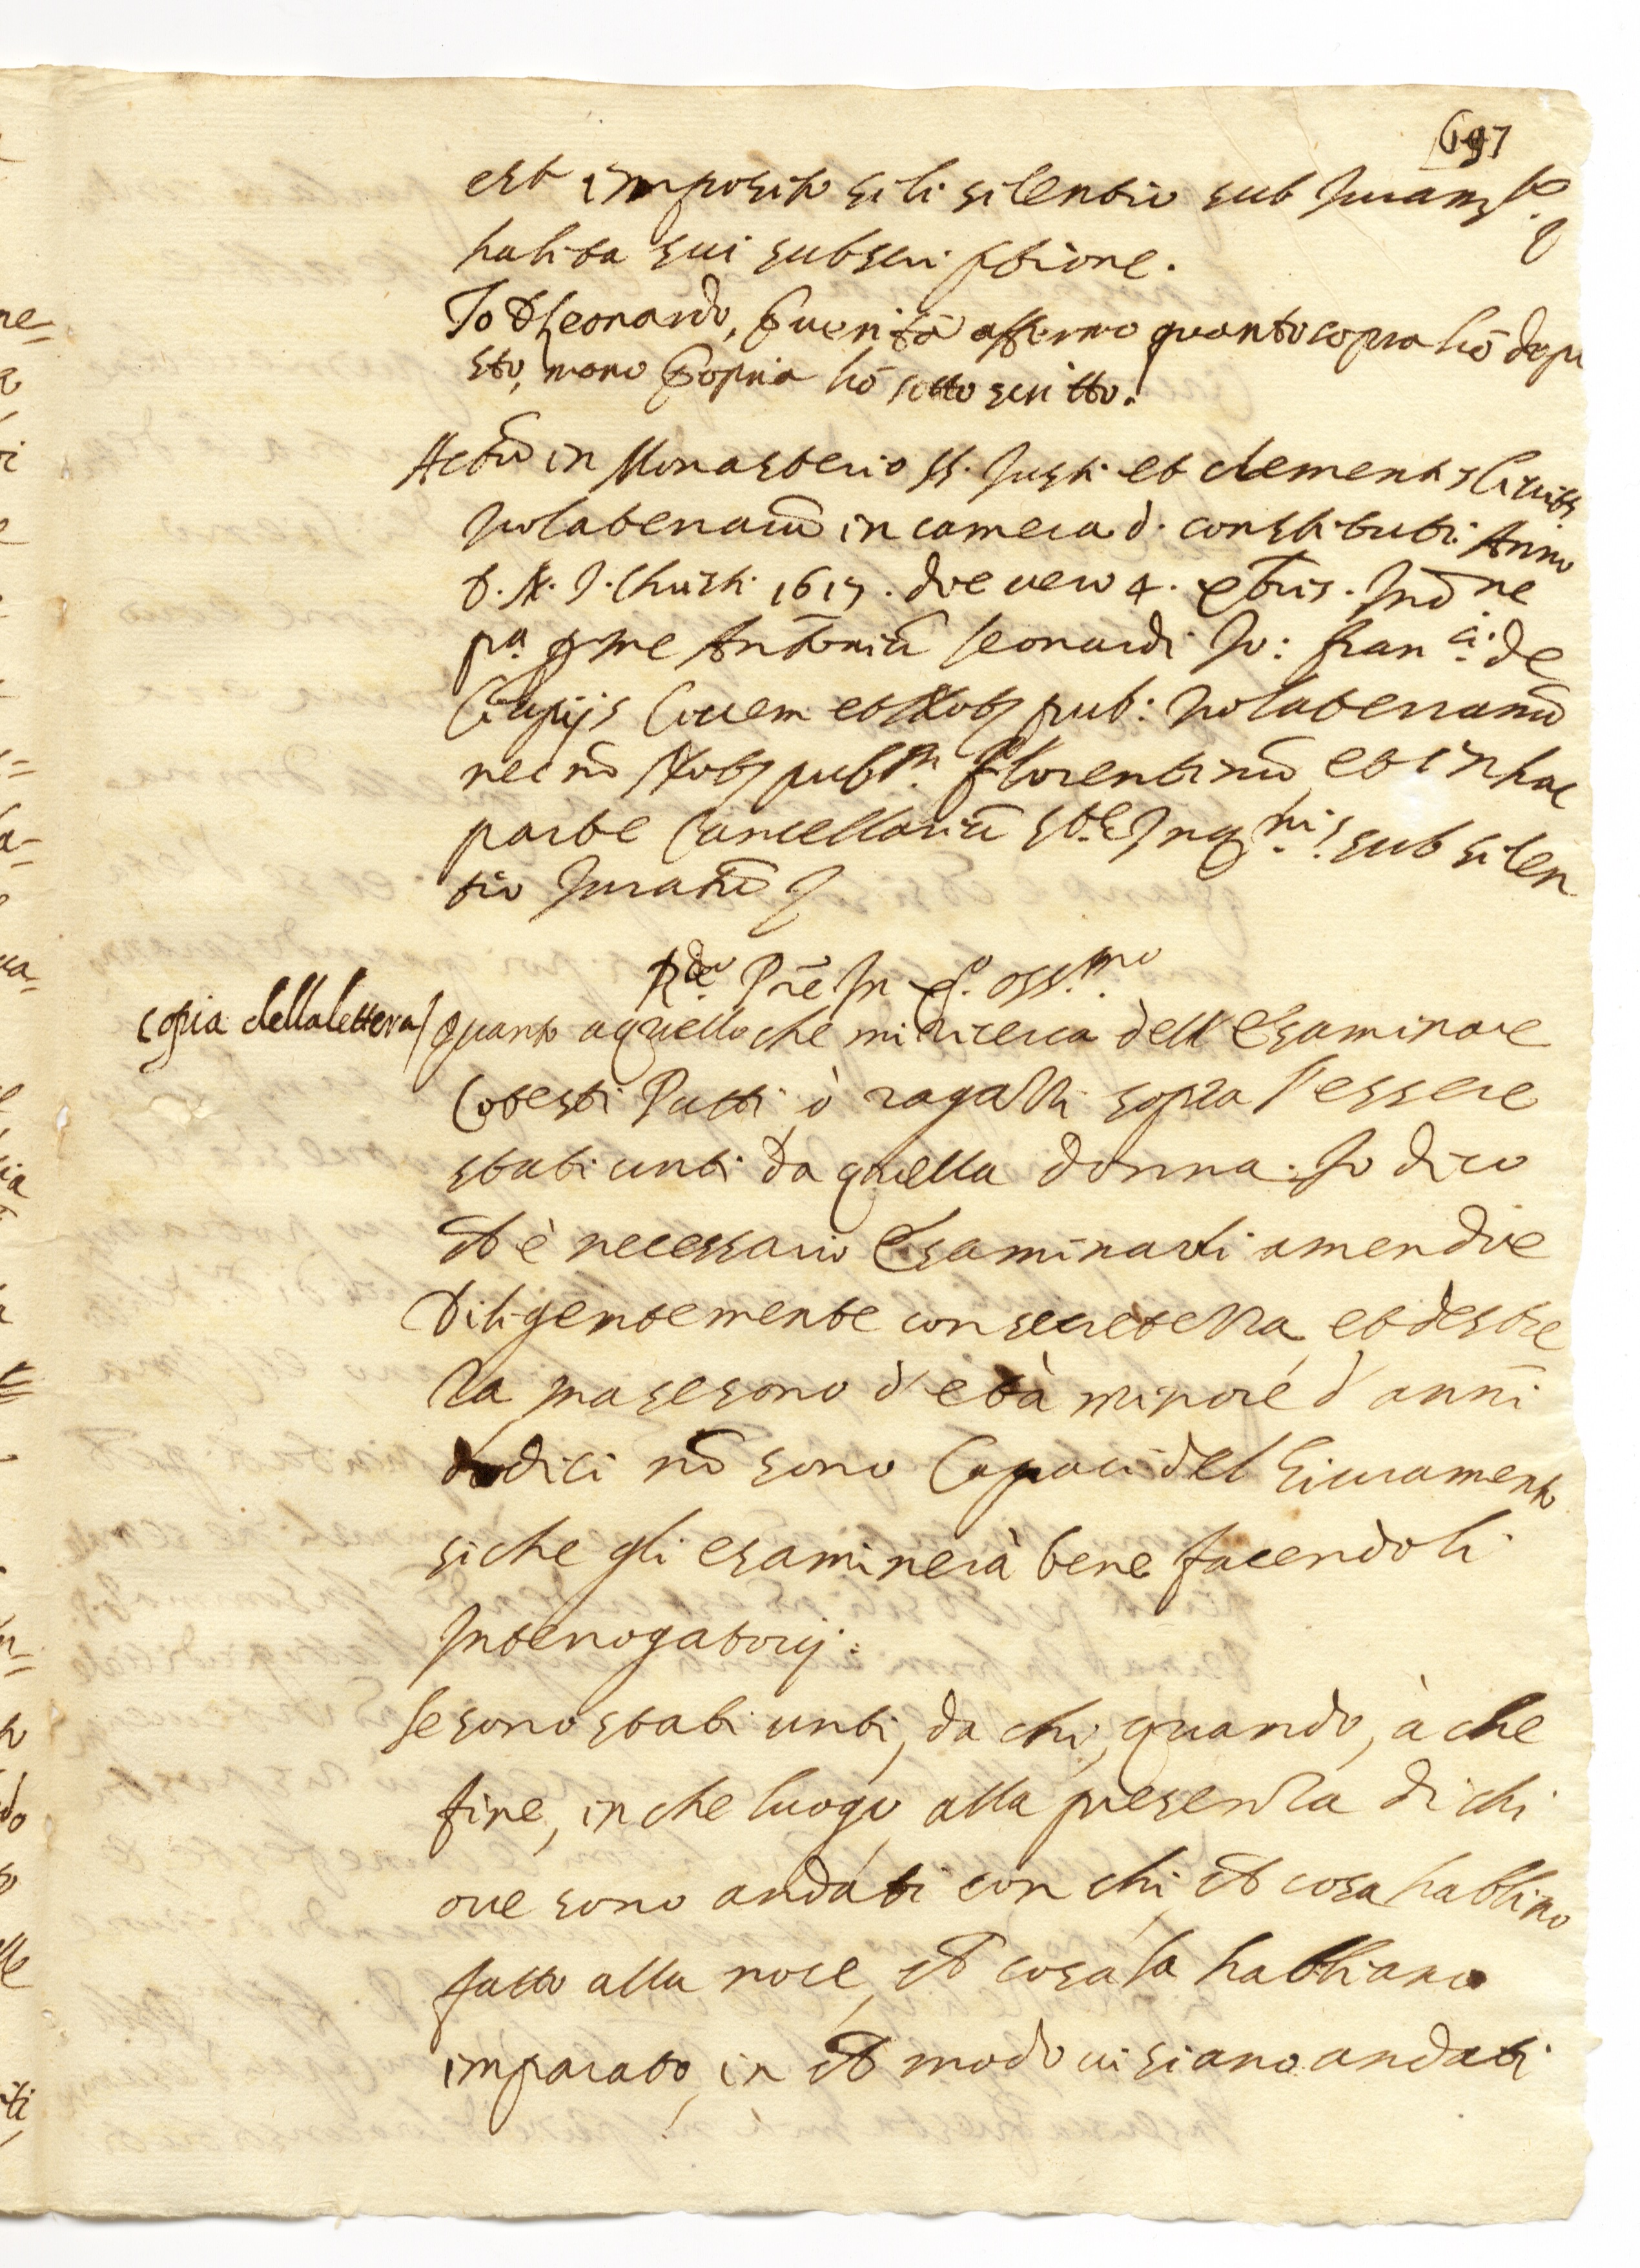 697
est imposito sibi silentio sub Juram.to &
habita sui subscriptione.
Io D Leonardo, p uerità affermo quanto sopra hò depo
sto, mano propria hò sotto scritto.
Actū in Monasterio SS. Justi et clementis Ciuit.
Volaterrarū in camera d. constituti. Anno
D. N. J. Christi 1617. die uero 4. Xbris. Indne
p.a p me Antoniū leonardi Jo: fran.ci de
Ciupijs Ciuem et Not. pub: Volaterranū
nec nō Not. pub.m florentinū, et in hac
parte Cancellariū S.te Inq.nis sub silen
tio Juratū
R.do Prē In X.o oss.mo
copia della lettera / Quanto a quello che mi ricerca dell'esaminare
Cotesti Putti, ò ragazzi sopra l'essere
stati unti da quella donna. Io dico
ch è necessario esaminarli amendue
diligentemente con secretezza, et destre
za, ma se sono d'età minore d'anni
dodici nō sono Capaci del Giuramento
siche gli esaminerà bene facendoli
Interrogatorij:
Se sono stati unti, da chi, quando, à che
fine, in che luogo, alla presenza di chi
oue sono andati con chi, ch cosa habbino
fatto alla noce, ch cosa la habbiano
imparato, in ch modo ui siano andati